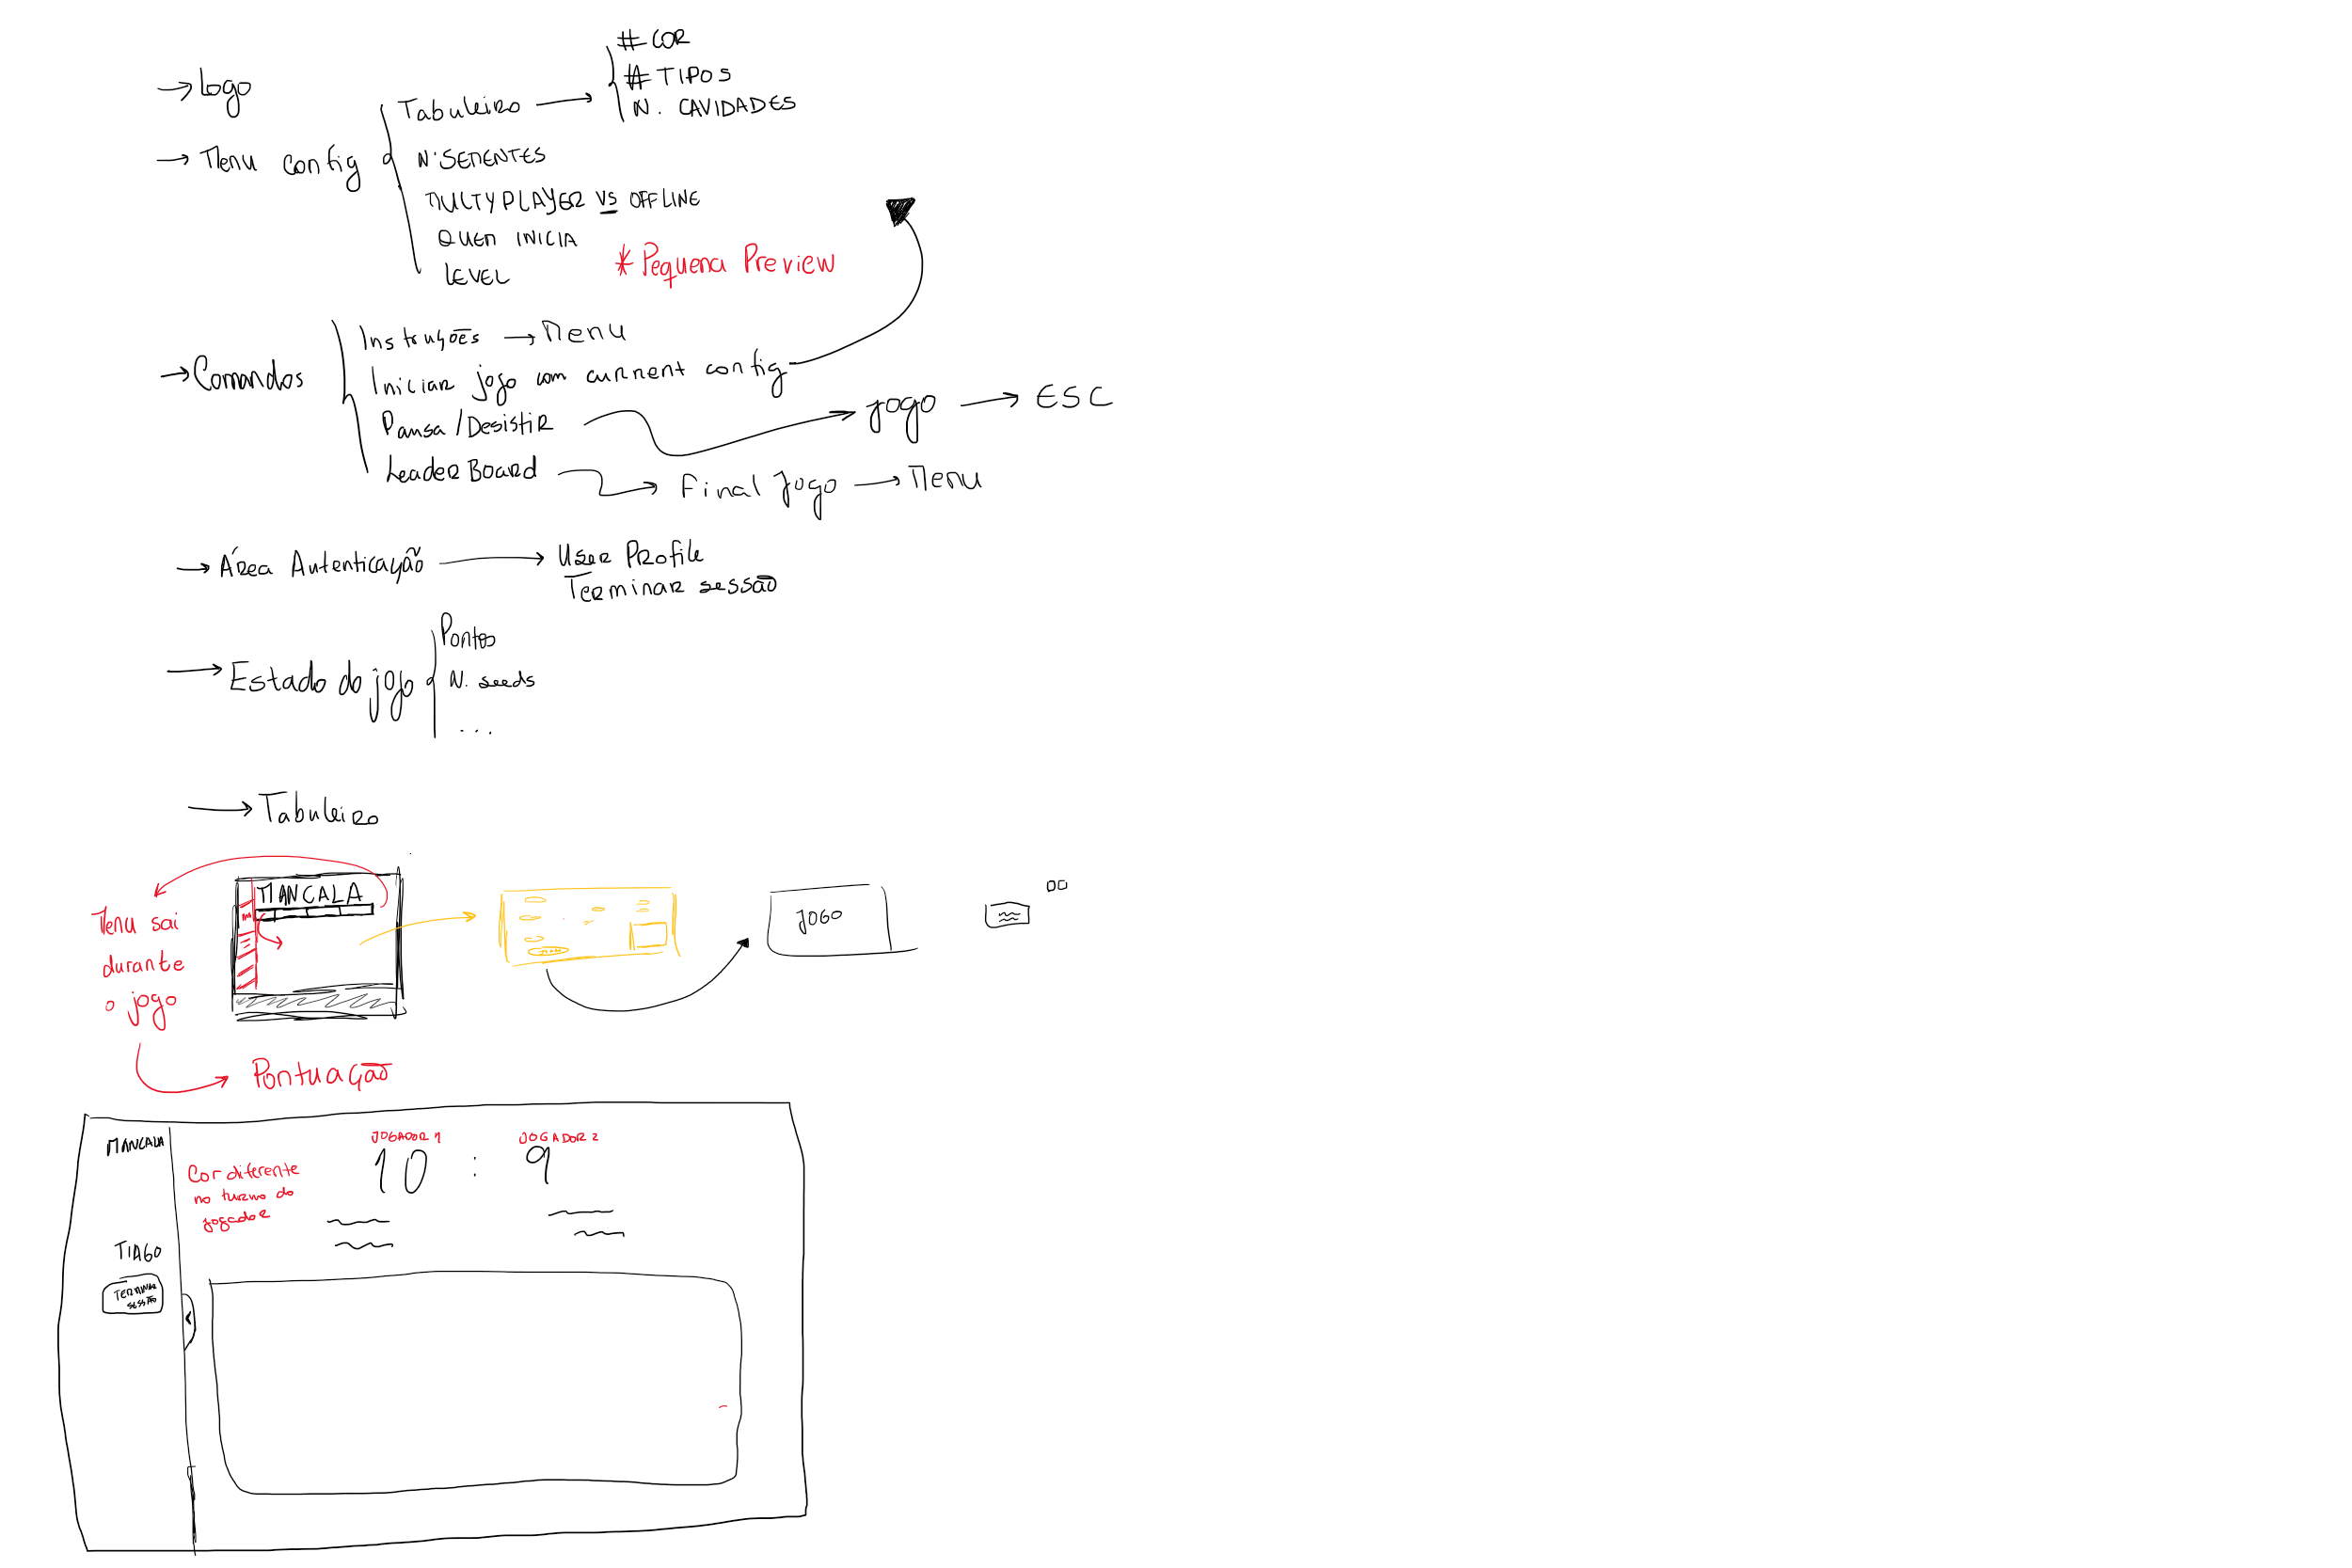 → Logo
→ Menu config
Tabuleiro →
# COR
# TIPOS
N. CAVIDADES
N. SEMENTES
MULTYPLAYER VS OFFLINE
QUEM INICIA
LEVEL
* Pequena Preview
→ Comandos
Instruções → Menu
Iniciar jogo com current config
Pausa / Desistir → jogo → ESC
LeaderBoard → Final Jogo → Menu
→ Área Autenticação → User Profile
Terminar sessão
→ Estado do jogo
Pontos
N. seeds
...
→ Tabuleiro
MANCALA
Menu sai
durante
o jogo
JOGO
Pontuação
MANCALA
JOGADOR 1
JOGADOR 2
10 : 9
Cor diferente
no turno do
jogador
TIAGO
TERMINAR
SESSÃO
<